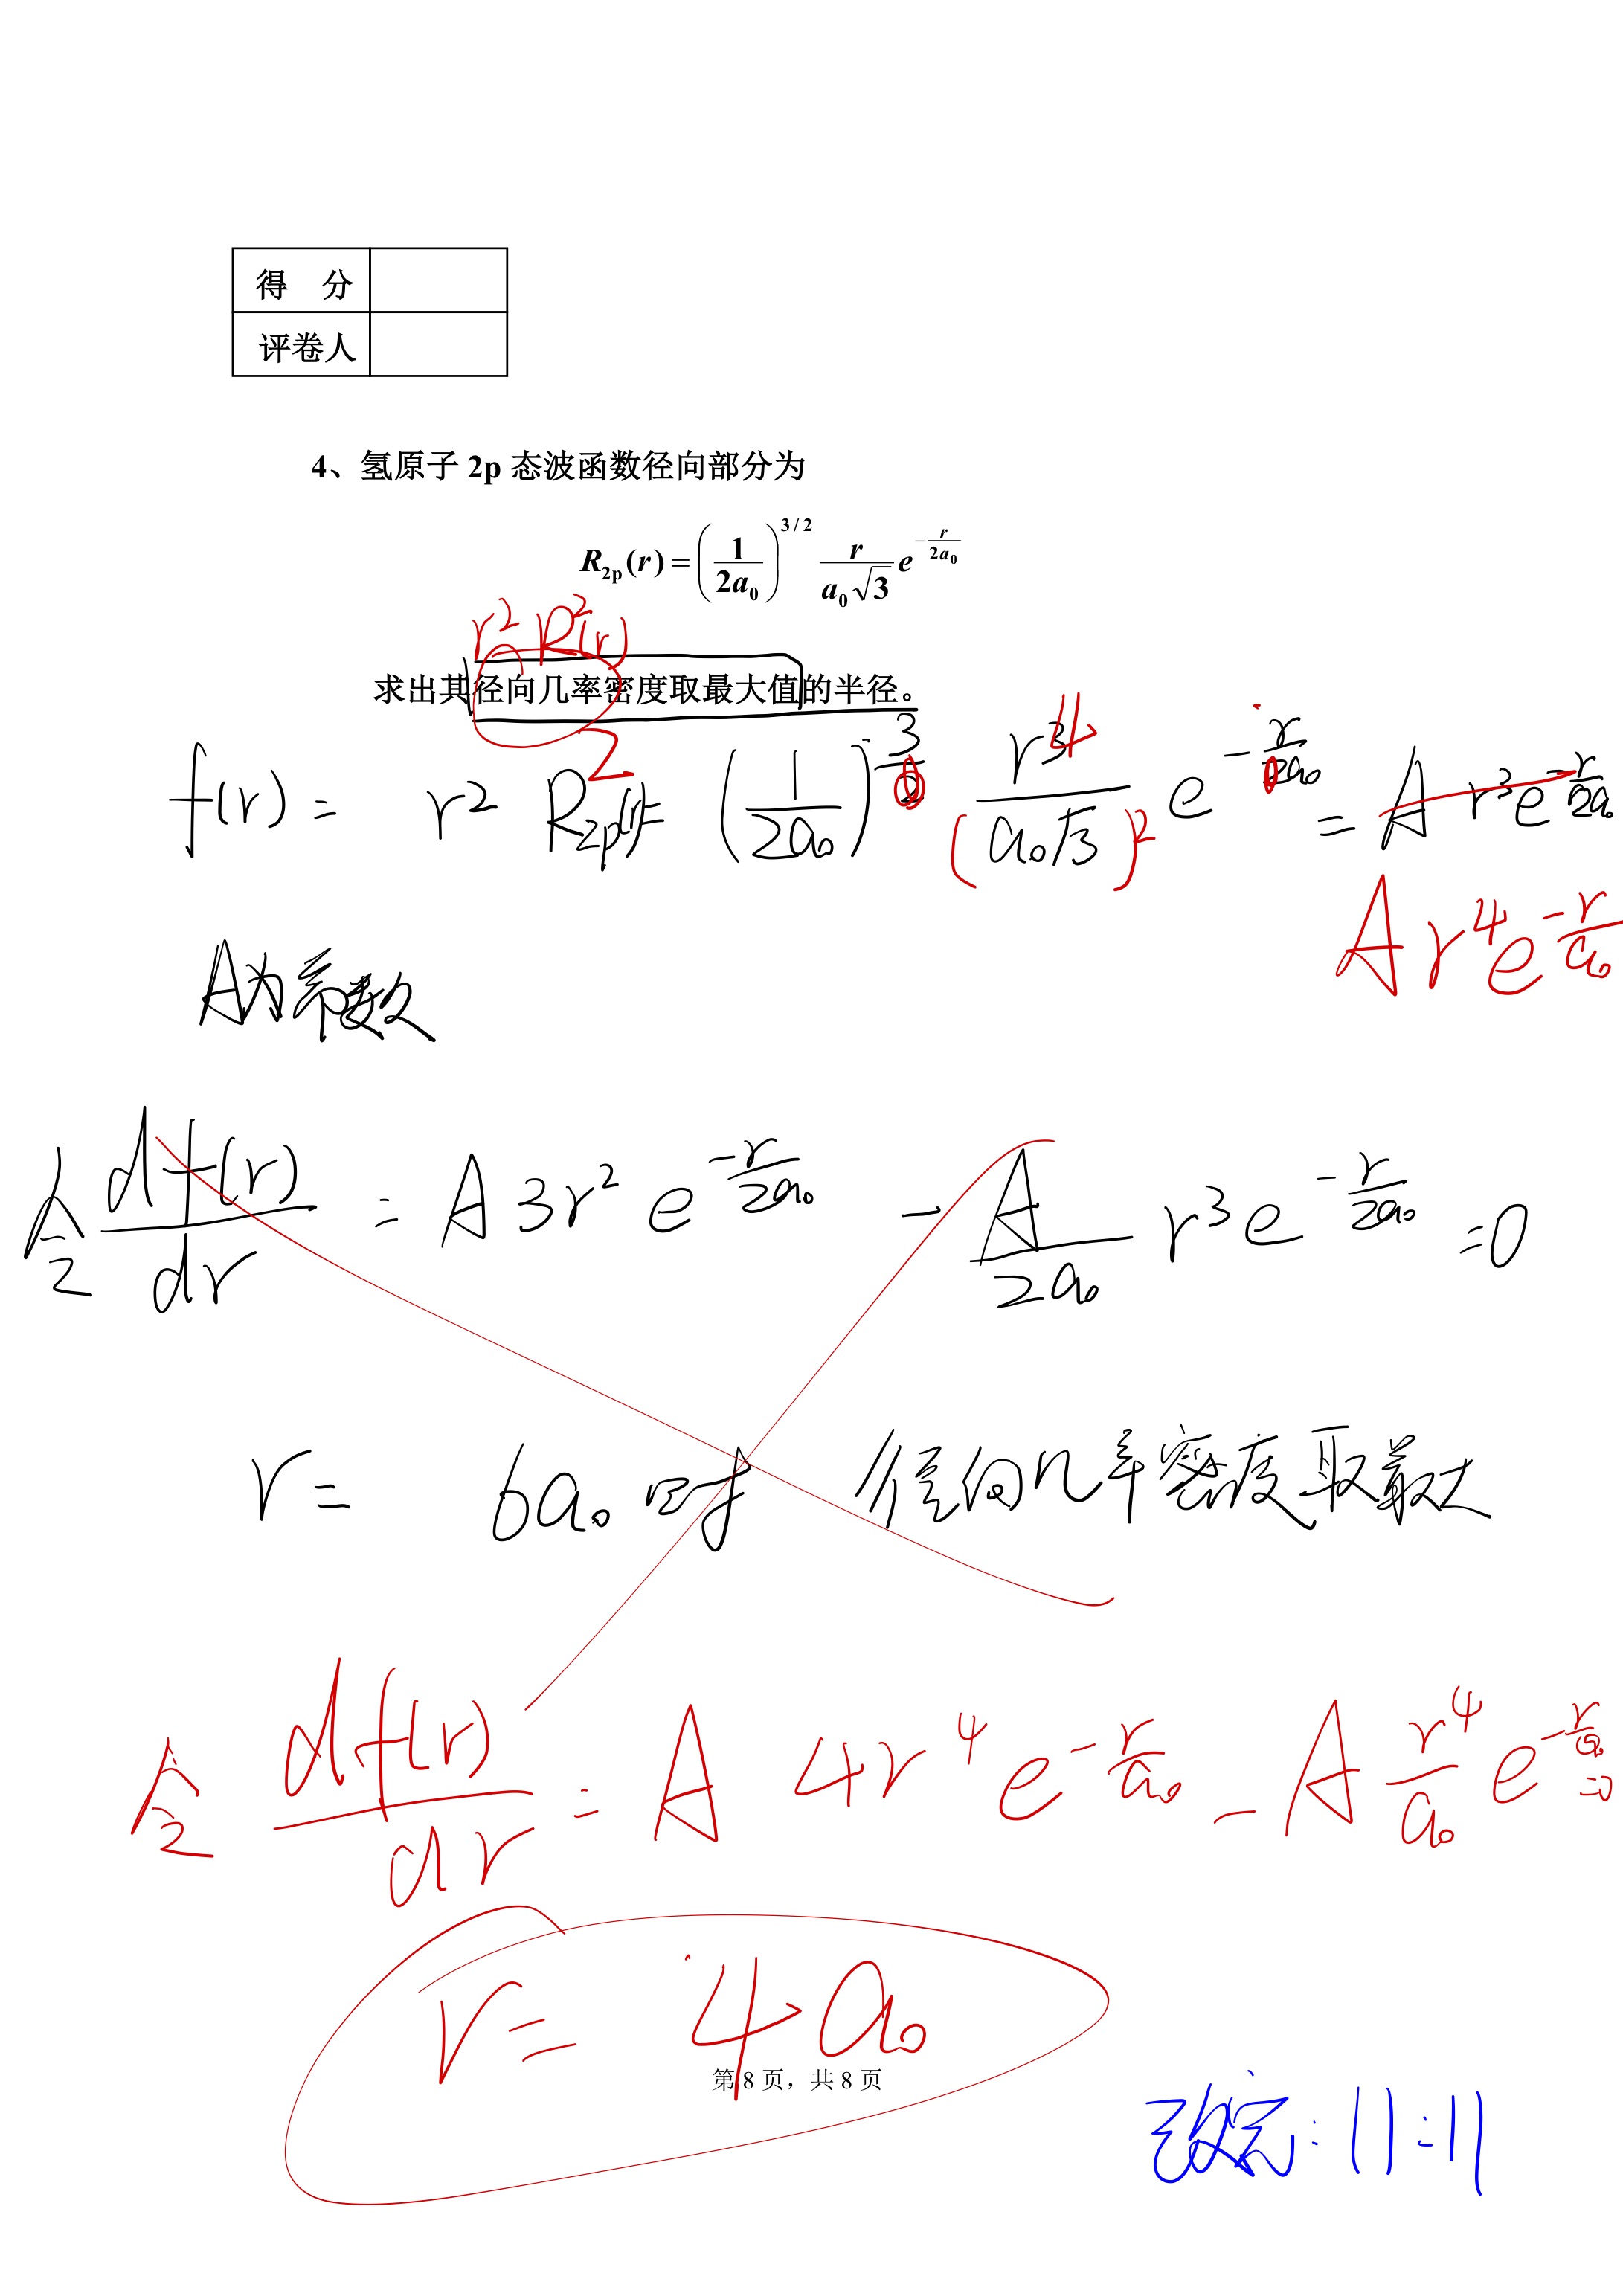 得 分
评卷人
4、氢原子 2p 态波函数径向部分为
R_{2p}(r) = (1/(2a_0))^{3/2} r/(a_0√3) e^{-r/(2a_0)}
r^2 R^2(r)
求出其径向几率密度取最大值的半径。
f(r) = r^2 R_{2p}^2(r) = (1/(2a_0))^3 r^4/(a_0√3)^2 e^{-r/a_0} = A r^3 e^{-r/(2a_0)}
A r^4 e^{-r/a_0}
A为系数
令 df(r)/dr = A 3r^2 e^{-r/(2a_0)} - A/(2a_0) r^3 e^{-r/(2a_0)} = 0
r = 6a_0 时 径向几率密度取最大
令 df(r)/dr = A 4r^4 e^{-r/a_0} - A r^4/a_0 e^{-r/a_0} = 0
r = 4a_0
第 8 页，共 8 页
改完:11:11